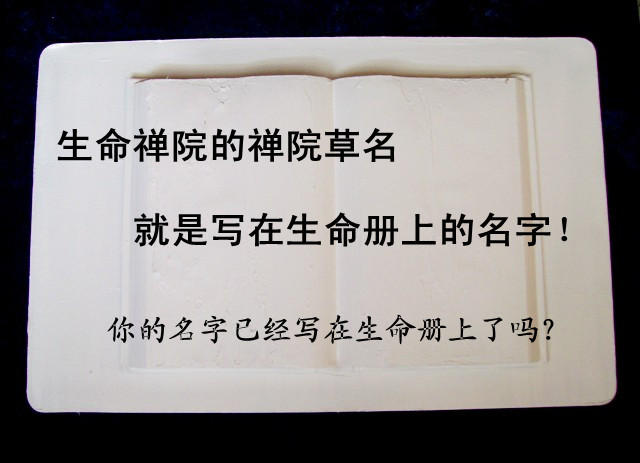 生命禅院的禅院草名
就是写在生命册上的名字！
你的名字已经写在生命册上了吗？